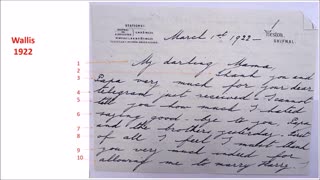 Wallis
1922
STATIONS:
March 1st 1922 —
WESTON,
SHIFNAL.
1
2
3
4
5
6
7
8
9
10
My darling Mama,
thank you and
Papa very much for your dear
telegram just received. I cannot
tell you how much I hated
saying good-bye to you, Papa
and the brothers yesterday. First
of all I feel I must thank
you very much indeed for
allowing me to marry Harry.